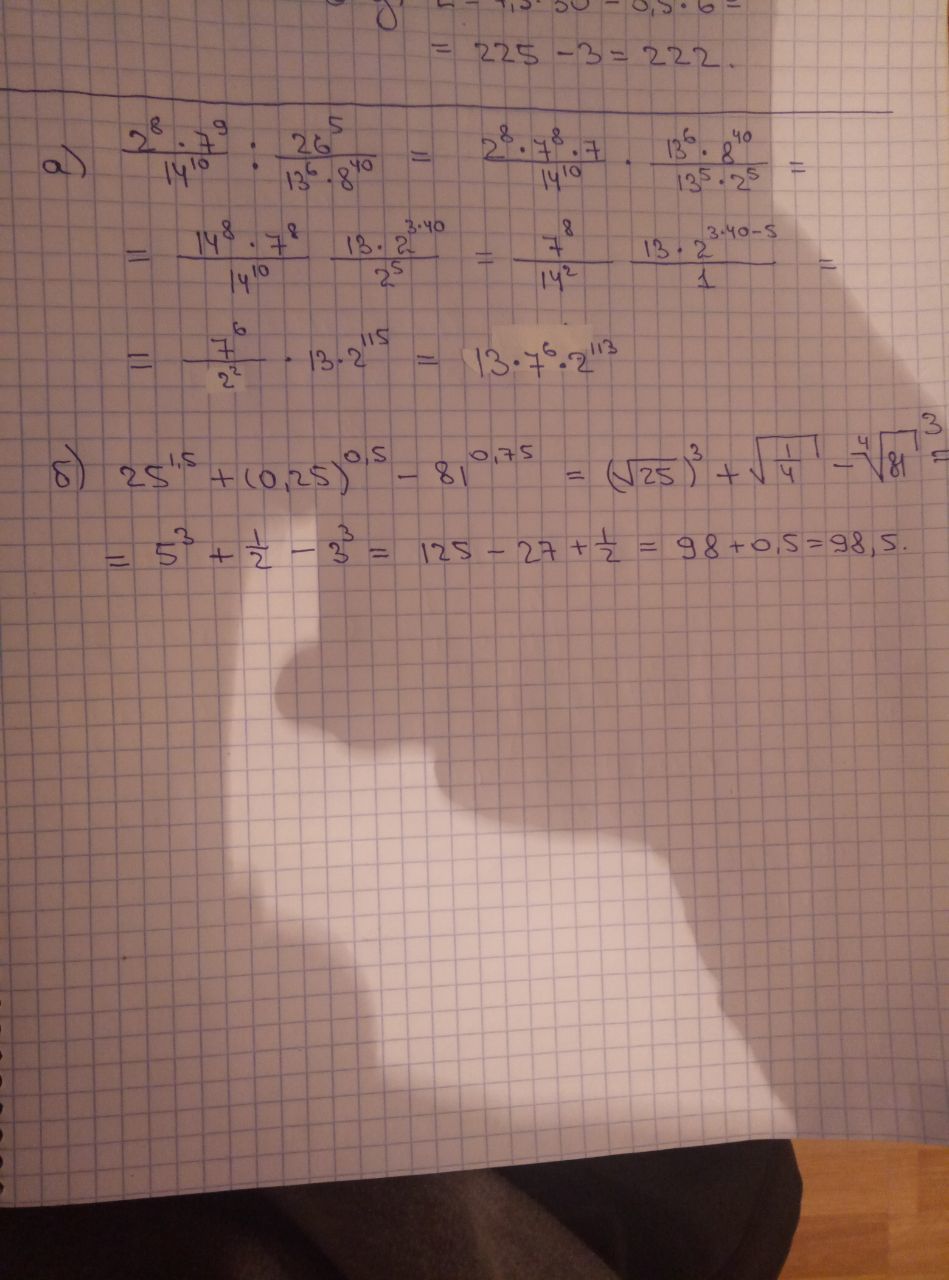 = 225 - 3 = 222.
а) \frac{2^8 · 7^9}{14^{10}} : \frac{26^5}{13^6 · 8^{40}} = \frac{2^8 · 7^8 · 7}{14^{10}} · \frac{13^6 · 8^{40}}{13^5 · 2^5} =
= \frac{14^8 · 7^8}{14^{10}} \frac{13 · 2^{3·40}}{2^5} = \frac{7^8}{14^2} \frac{13 · 2^{3·40-5}}{1} =
= \frac{7^6}{2^2} · 13 · 2^{115} = 13 · 7^6 · 2^{113}
б) 25^{1,5} + (0,25)^{0,5} - 81^{0,75} = (\sqrt{25})^3 + \sqrt{\frac{1}{4}} - \sqrt[4]{81}^3 =
= 5^3 + \frac{1}{2} - 3^3 = 125 - 27 + \frac{1}{2} = 98 + 0,5 = 98,5.